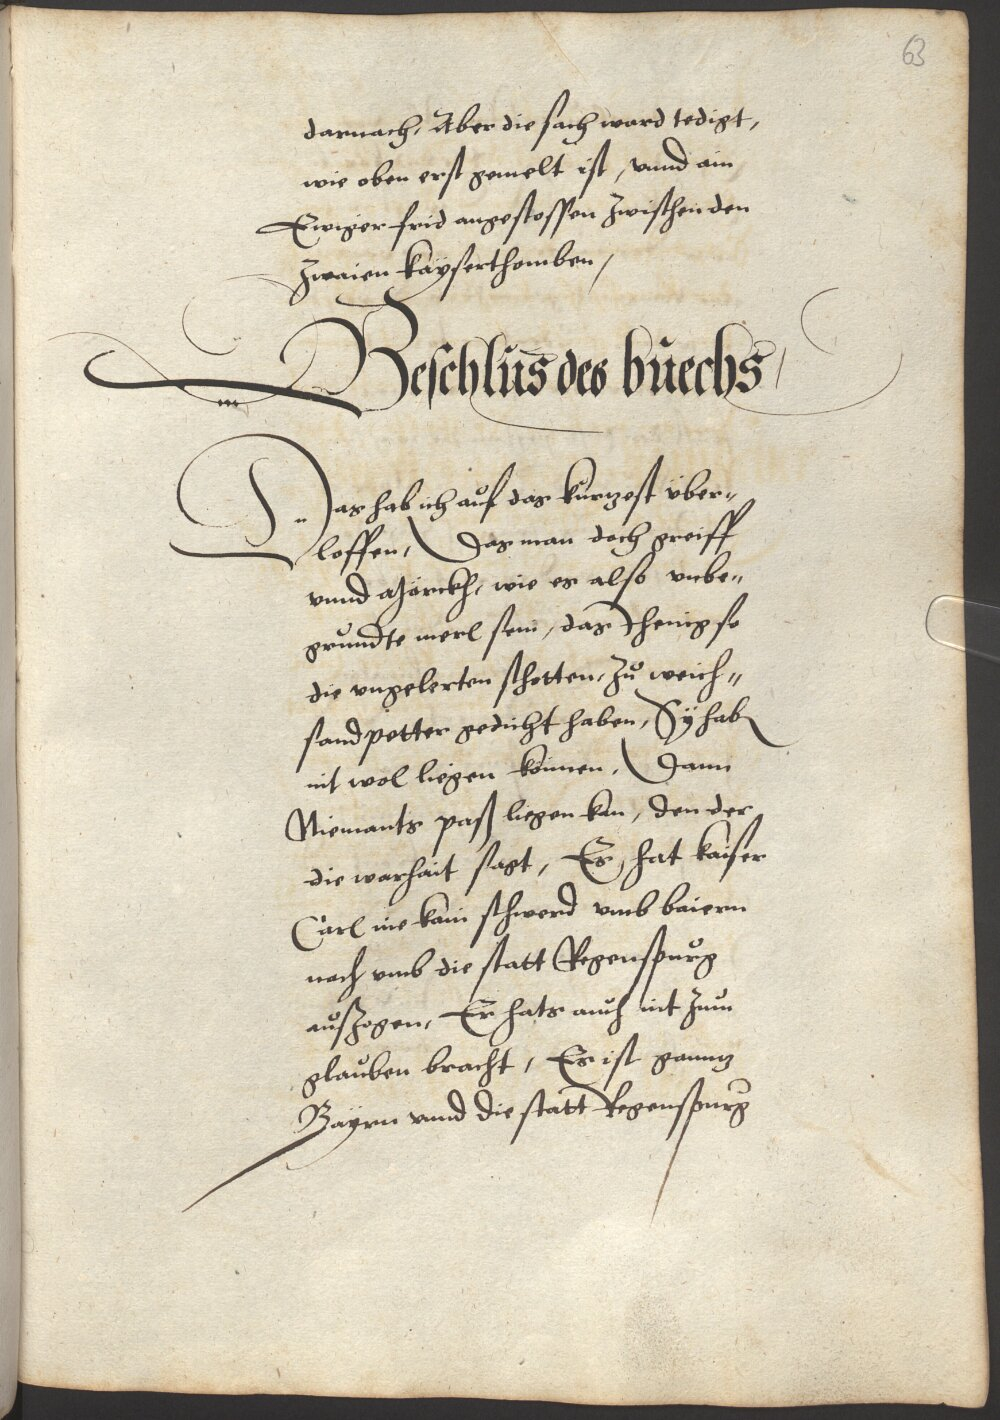 63
darnach, Aber die sach ward tedigt,
wie oben erst gemelt ist, vnnd ain
Ewiger frid angestossen zwischen den
zwaien kaÿserthomben,
Beschlus des buechs
Das hab ich auf das kurtzest vber„
loffen, Das man doch greiff
vnnd mörckh, wie es also vnbe„
grundte merl sein, das Jhenig so
die vngelerten schotten, zu weich„
sand petter gedicht haben, Sÿ hab
nit wol liegen können, Dann
Niemants paß liegen kan, den der
die warhait sagt, Es hat kaiser
Carl nie kain schwerd vmb baiern
noch vmb die statt Regenspurg
auszogen, Er hats auch nit zum
glauben bracht, Es ist ganntz
Bayrn vnnd die statt Regenspurg